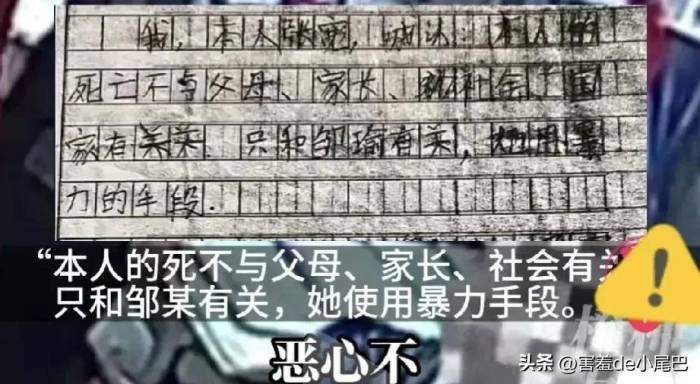 我, 本人张 , : 本人的
死亡不与父母、家长、 社会、国
家有关 只和邹 有关, 她用暴
力的手段.
“本人的死不与父母、家长、社会有关
只和邹某有关，她使用暴力手段。
恶心不
头条 @害羞de小尾巴